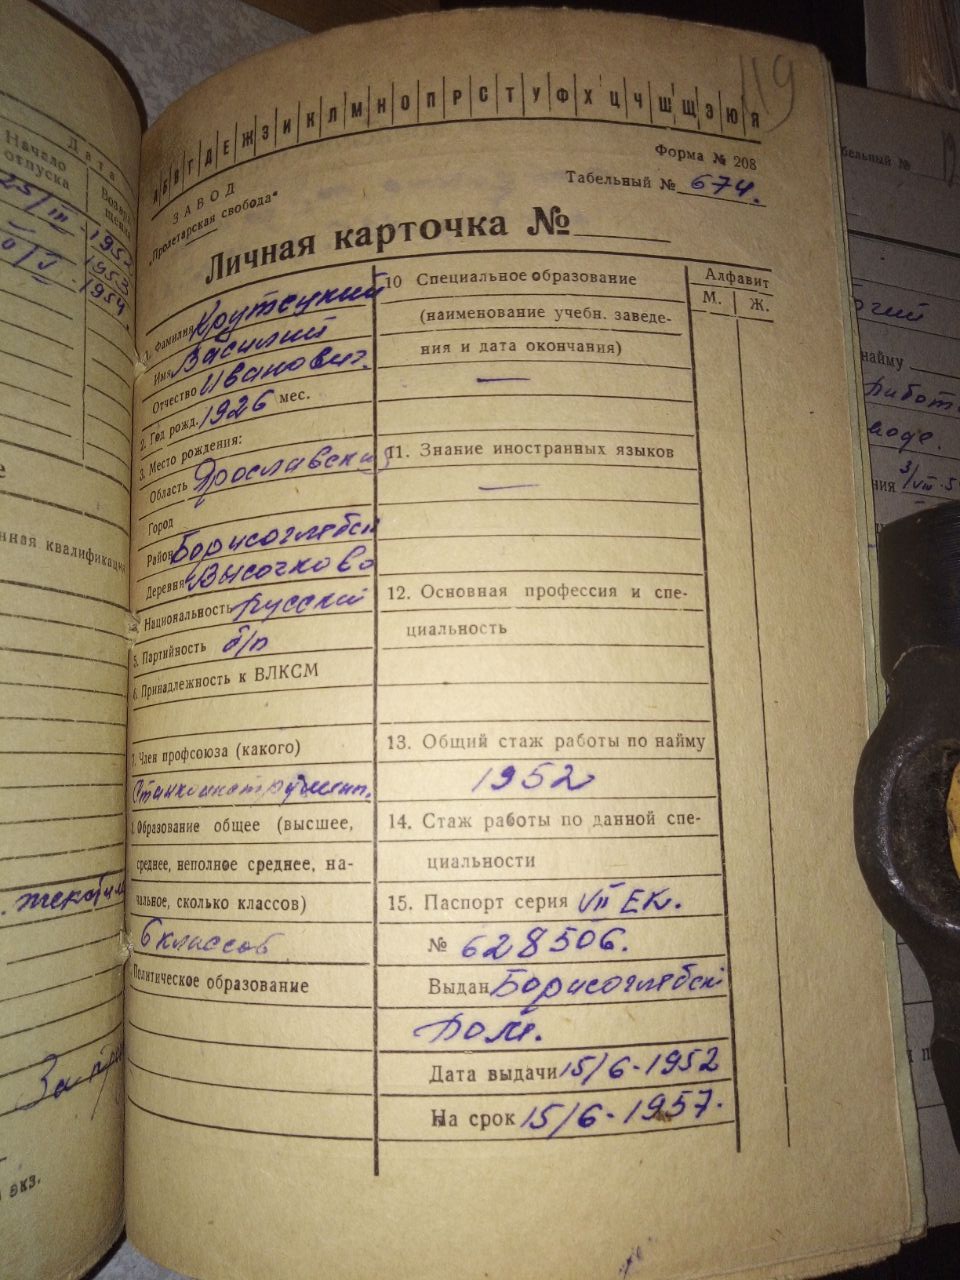 119
А Б В Г Д Е Ж З И К Л М Н О П Р С Т У Ф Х Ц Ч Ш Щ Э Ю Я
Форма № 208
ЗАВОД
Табельный № 674.
„Пролетарская свобода"
Личная карточка №
1. Фамилия Крутецкий
Имя Василий
Отчество Иванович.
2. Год рожд. 1926 мес.
3. Место рождения:
Область Ярославский
Город
Район Борисоглебск
Деревня Высочково
Национальность Русский
5. Партийность б/п
6. Принадлежность к ВЛКСМ
7. Член профсоюза (какого)
Станкоинструмент.
8. Образование общее (высшее,
среднее, неполное среднее, на-
чальное, сколько классов)
6 классов
Политическое образование
10 Специальное образование
(наименование учебн. заведе-
ния и дата окончания)
—
11. Знание иностранных языков
—
12. Основная профессия и спе-
циальность
13. Общий стаж работы по найму
1952
14. Стаж работы по данной спе-
циальности
15. Паспорт серия VII ЕК.
№ 628506.
Выдан Борисоглебски
Пом.
Дата выдачи 15/6-1952
На срок 15/6-1957.
Алфавит
М. Ж.
Дата
Начало
отпуска
Возвра-
щения
25/III 1952
1953
0/I 1954.
нная квалификац
За
экз.
бельный №
найму
работ
3/VIII-5